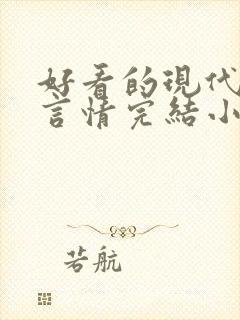 好看的現代
言情完結小
若航